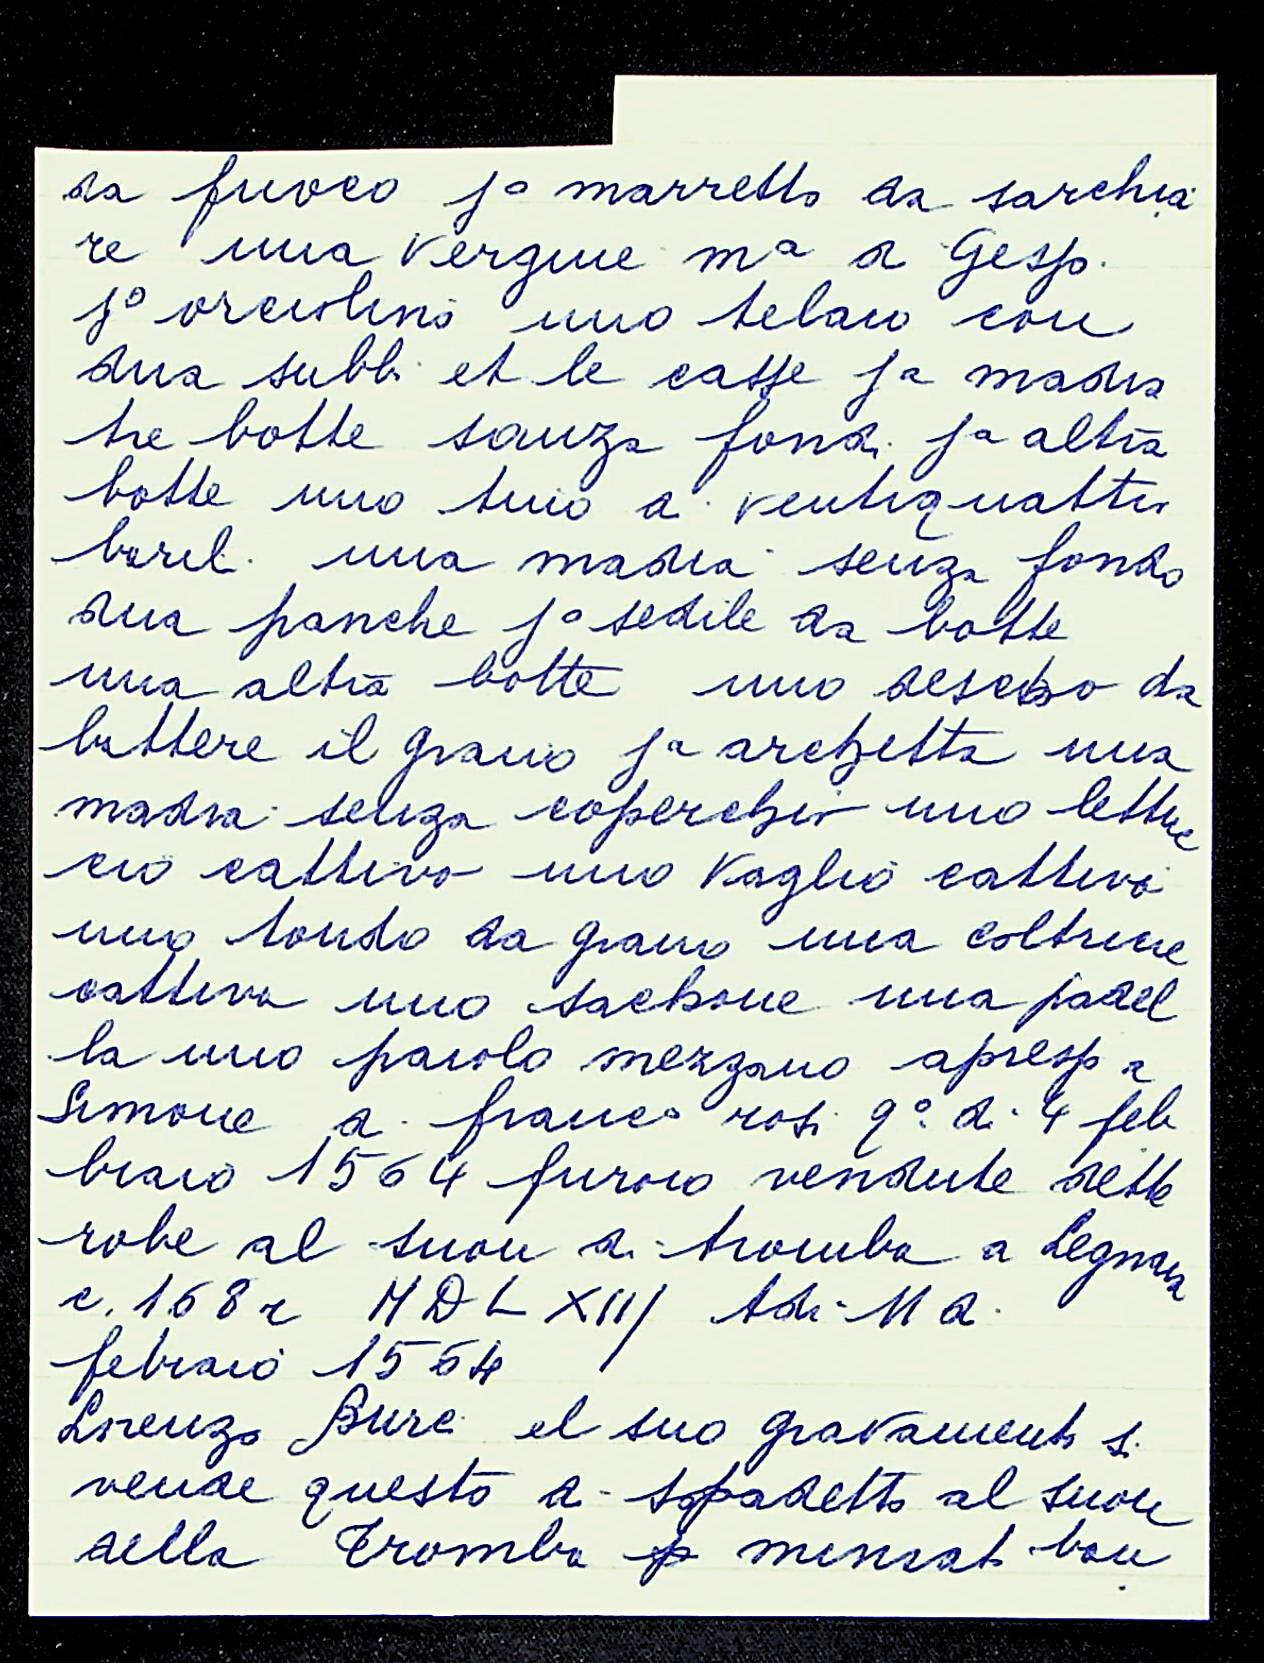 da fuoco jo marretto da sarchia
re una vergine ma di Gesp.
jo orciolino uno telaio con
dua subbi et le casse ja madia
tre botte sanza fondi ja altra
botte uno tino di ventiquattro
baril. una madia senza fondo
dua panche jo sedile da botte
una altra botte uno descho da
battere il grano ja archetta una
madia senza coperchio uno lettuc
cio cattivo uno vaglio cattivo
uno tondo da grano una coltrice
cattiva uno sachone una padel
la uno paiolo mezzano apresp a
Simone di franco rosi qo. di 4 feb
braio 1564 furono vendute dette
robe al suon di tromba a Legnaia
c. 168 r MDLXIII/ Adi 11 di
febraio 1564
Lorenzo Buci el suo gravamento si
vende questo di sopadetto al suon
della Tromba p bon